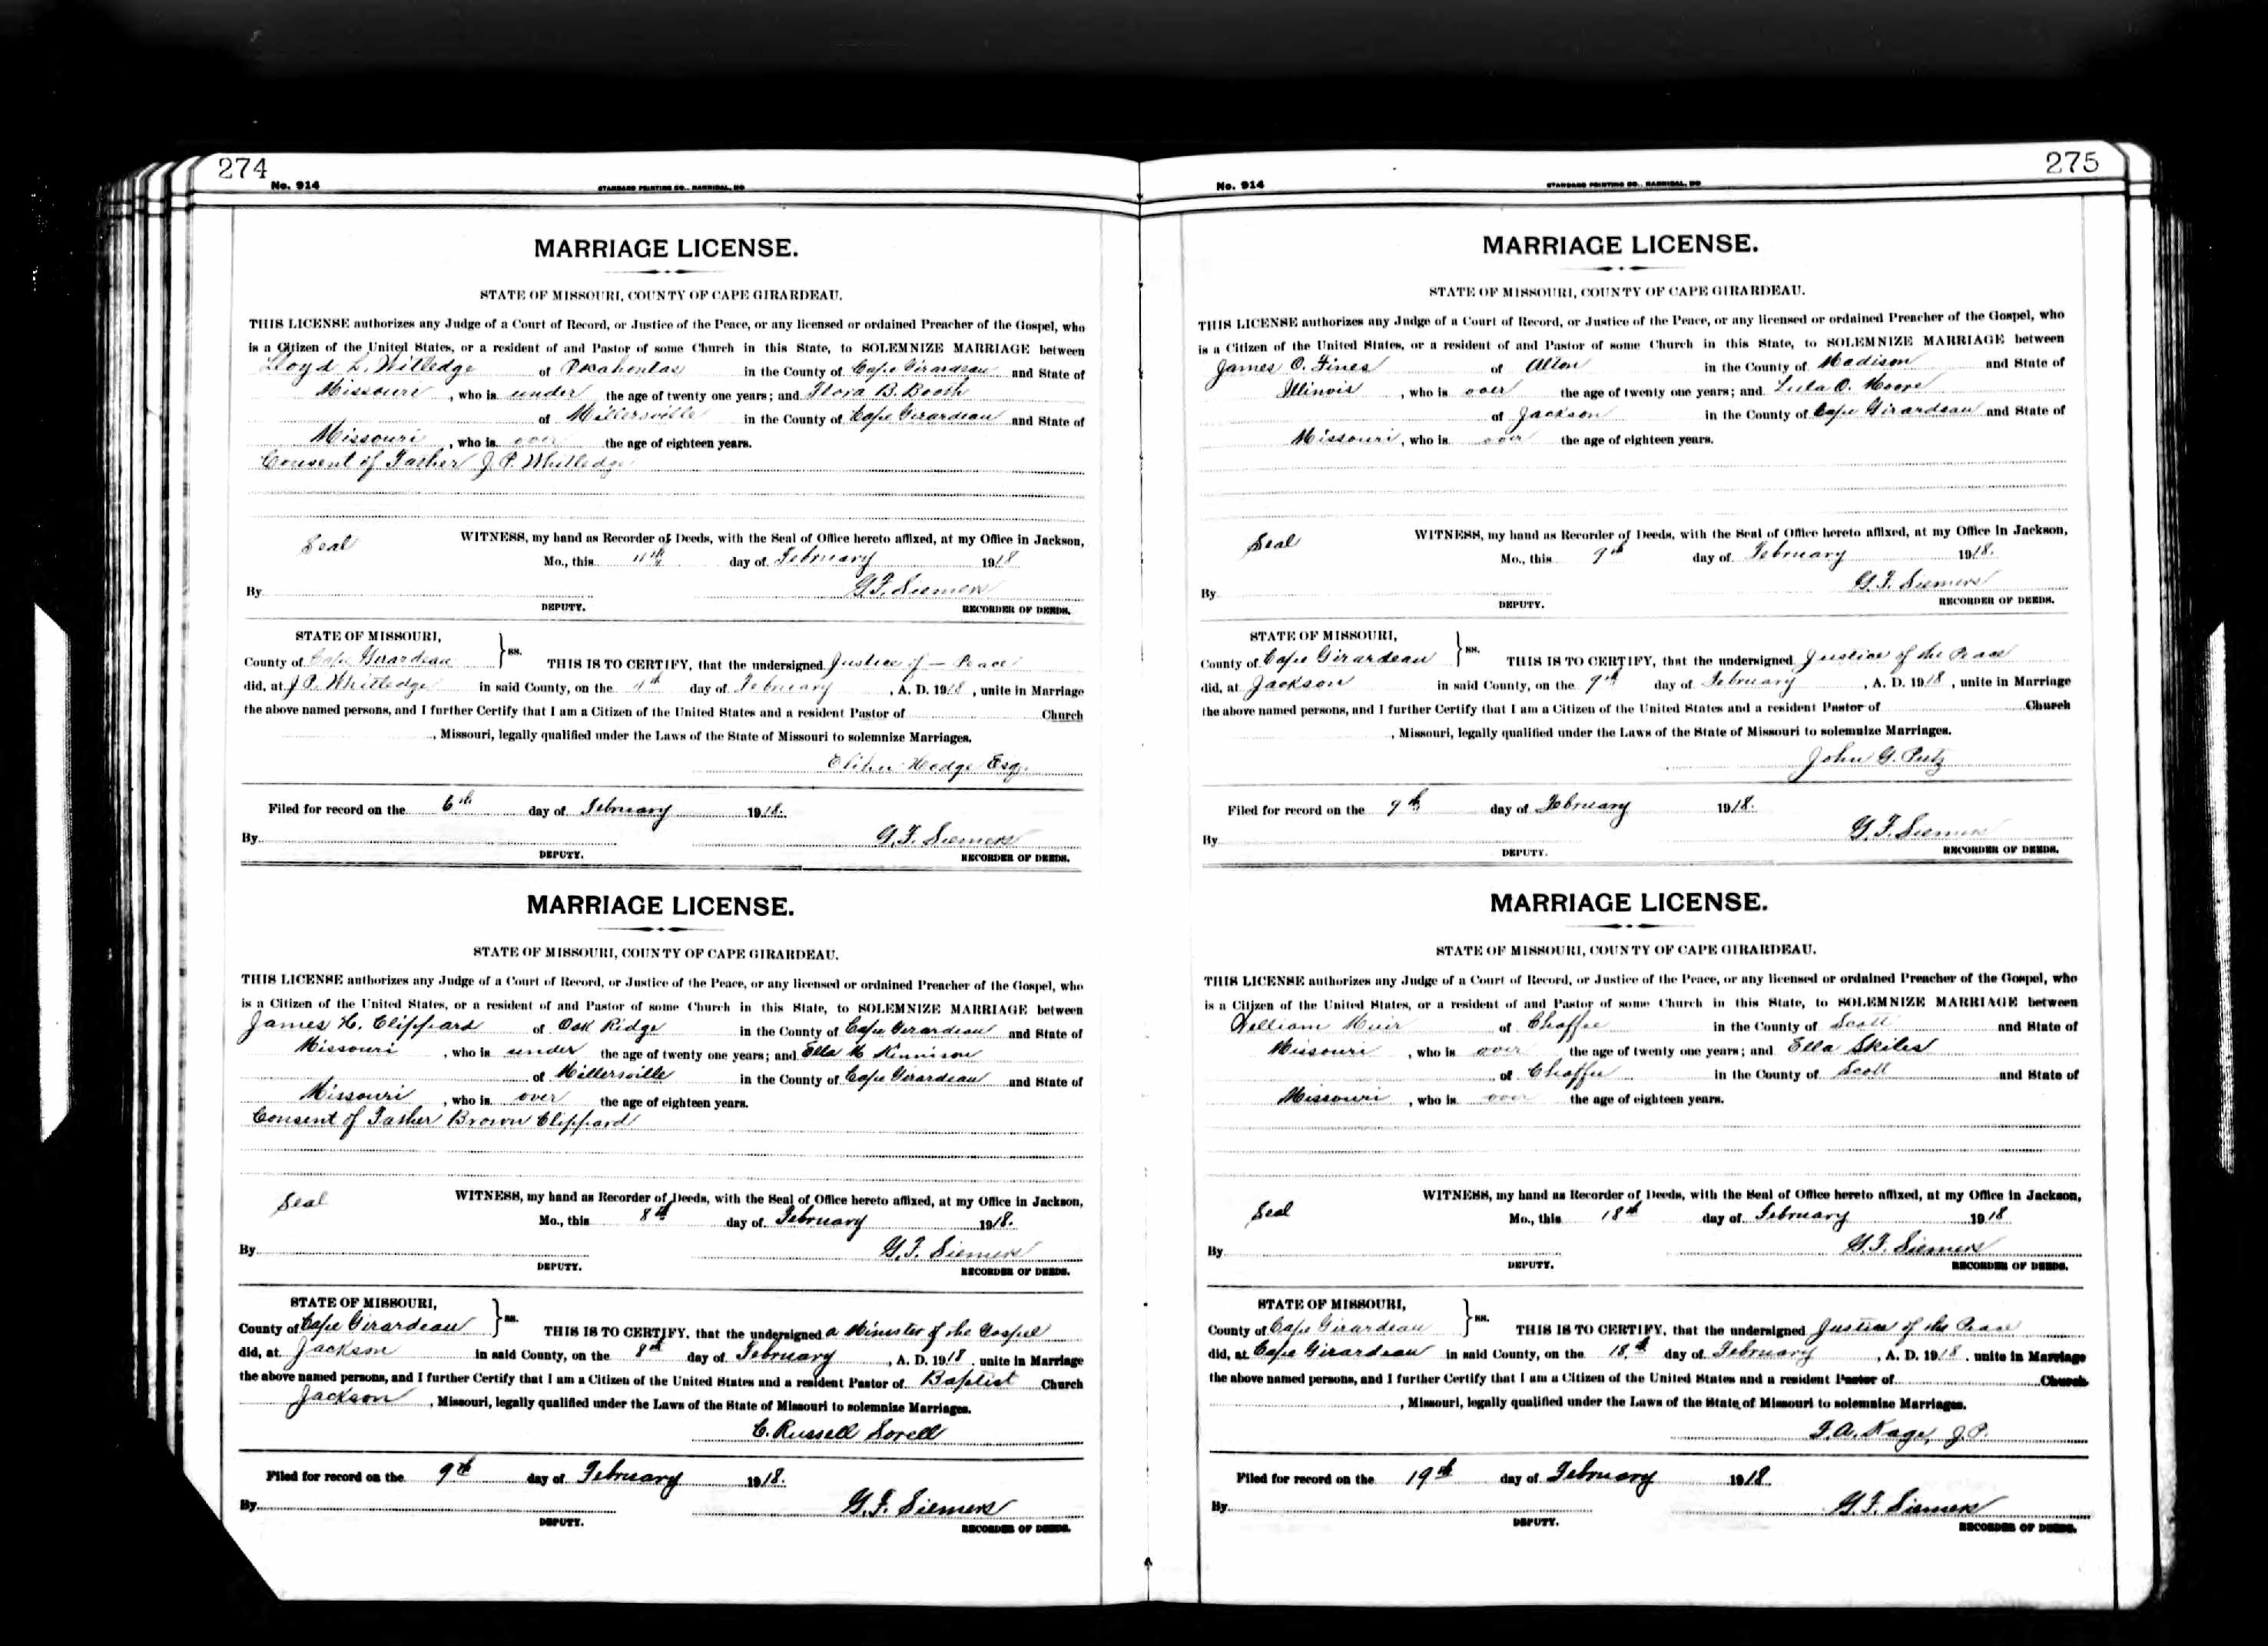 274
No. 914 STANDARD PRINTING CO., HANNIBAL, MO
MARRIAGE LICENSE.
STATE OF MISSOURI, COUNTY OF CAPE GIRARDEAU.
THIS LICENSE authorizes any Judge of a Court of Record, or Justice of the Peace, or any licensed or ordained Preacher of the Gospel, who
is a Citizen of the United States, or a resident of and Pastor of some Church in this State, to SOLEMNIZE MARRIAGE between
Lloyd L. Witledge of Pocahontas in the County of Cape Girardeau and State of
Missouri, who is under the age of twenty one years; and Flora B. Booth
of Millersville in the County of Cape Girardeau and State of
Missouri, who is over the age of eighteen years.
Consent of Father J. P. Whitledge
Seal WITNESS, my hand as Recorder of Deeds, with the Seal of Office hereto affixed, at my Office in Jackson,
Mo., this day of February 1918
By G. F. Siemers
DEPUTY. RECORDER OF DEEDS.
STATE OF MISSOURI,
County of Cape Girardeau } ss. THIS IS TO CERTIFY, that the undersigned Justice of — Peace
did, at J P. Whitledge in said County, on the day of February, A. D. 1918, unite in Marriage
the above named persons, and I further Certify that I am a Citizen of the United States and a resident Pastor of Church
, Missouri, legally qualified under the Laws of the State of Missouri to solemnize Marriages.
Elihu Hodge Esq.
Filed for record on the 6th day of February 1918.
By G. F. Siemers
DEPUTY. RECORDER OF DEEDS.
MARRIAGE LICENSE.
STATE OF MISSOURI, COUNTY OF CAPE GIRARDEAU.
THIS LICENSE authorizes any Judge of a Court of Record, or Justice of the Peace, or any licensed or ordained Preacher of the Gospel, who
is a Citizen of the United States, or a resident of and Pastor of some Church in this State, to SOLEMNIZE MARRIAGE between
James H. Clippard of Oak Ridge in the County of Cape Girardeau and State of
Missouri, who is under the age of twenty one years; and Ella M Kinnison
of Millersville in the County of Cape Girardeau and State of
Missouri, who is over the age of eighteen years.
Consent of Father Brown Clippard
Seal WITNESS, my hand as Recorder of Deeds, with the Seal of Office hereto affixed, at my Office in Jackson,
Mo., this 8th day of February 1918.
By G. F. Siemers
DEPUTY. RECORDER OF DEEDS.
STATE OF MISSOURI,
County of Cape Girardeau } ss. THIS IS TO CERTIFY, that the undersigned a Minister of the Gospel
did, at Jackson in said County, on the 8th day of February, A. D. 1918, unite in Marriage
the above named persons, and I further Certify that I am a Citizen of the United States and a resident Pastor of Baptist Church
Jackson, Missouri, legally qualified under the Laws of the State of Missouri to solemnize Marriages.
C. Russell Sorell
Filed for record on the 9th day of February 1918.
By G. F. Siemers
DEPUTY. RECORDER OF DEEDS.
275
No. 914 STANDARD PRINTING CO., HANNIBAL, MO
MARRIAGE LICENSE.
STATE OF MISSOURI, COUNTY OF CAPE GIRARDEAU.
THIS LICENSE authorizes any Judge of a Court of Record, or Justice of the Peace, or any licensed or ordained Preacher of the Gospel, who
is a Citizen of the United States, or a resident of and Pastor of some Church in this State, to SOLEMNIZE MARRIAGE between
James O. Fines of Alton in the County of Madison and State of
Illinois, who is over the age of twenty one years; and Lula O. Moore
of Jackson in the County of Cape Girardeau and State of
Missouri, who is over the age of eighteen years.
Seal WITNESS, my hand as Recorder of Deeds, with the Seal of Office hereto affixed, at my Office in Jackson,
Mo., this 9th day of February 1918.
By G. F. Siemers
DEPUTY. RECORDER OF DEEDS.
STATE OF MISSOURI,
County of Cape Girardeau } ss. THIS IS TO CERTIFY, that the undersigned Justice of the Peace
did, at Jackson in said County, on the 9th day of February, A. D. 1918, unite in Marriage
the above named persons, and I further Certify that I am a Citizen of the United States and a resident Pastor of Church
, Missouri, legally qualified under the Laws of the State of Missouri to solemnize Marriages.
John G. Putz
Filed for record on the 9th day of February 1918.
By G. F. Siemers
DEPUTY. RECORDER OF DEEDS.
MARRIAGE LICENSE.
STATE OF MISSOURI, COUNTY OF CAPE GIRARDEAU.
THIS LICENSE authorizes any Judge of a Court of Record, or Justice of the Peace, or any licensed or ordained Preacher of the Gospel, who
is a Citizen of the United States, or a resident of and Pastor of some Church in this State, to SOLEMNIZE MARRIAGE between
William Muir of Chaffee in the County of Scott and State of
Missouri, who is over the age of twenty one years; and Ella Skiles
of Chaffee in the County of Scott and State of
Missouri, who is over the age of eighteen years.
Seal WITNESS, my hand as Recorder of Deeds, with the Seal of Office hereto affixed, at my Office in Jackson,
Mo., this 18th day of February 1918
By G. F. Siemers
DEPUTY. RECORDER OF DEEDS.
STATE OF MISSOURI,
County of Cape Girardeau } ss. THIS IS TO CERTIFY, that the undersigned Justice of the Peace
did, at Cape Girardeau in said County, on the 18th day of February, A. D. 1918, unite in Marriage
the above named persons, and I further Certify that I am a Citizen of the United States and a resident Pastor of Church
, Missouri, legally qualified under the Laws of the State of Missouri to solemnize Marriages.
I. A. Kage, J. P.
Filed for record on the 19th day of February 1918.
By G. F. Siemers
DEPUTY. RECORDER OF DEEDS.